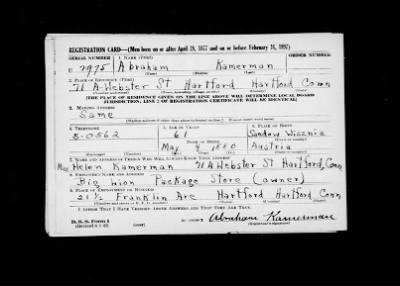 REGISTRATION CARD—(Men born on or after April 28, 1877 and on or before February 16, 1897)
SERIAL NUMBER 1. NAME (Print) ORDER NUMBER
U 2975 Abraham Kamerman
(First) (Middle) (Last)
2. PLACE OF RESIDENCE (Print)
71 A Webster St Hartford Hartford Conn
[THE PLACE OF RESIDENCE GIVEN ON THE LINE ABOVE WILL DETERMINE LOCAL BOARD
JURISDICTION; LINE 2 OF REGISTRATION CERTIFICATE WILL BE IDENTICAL]
3. MAILING ADDRESS
Same
4. TELEPHONE 5. AGE IN YEARS 6. PLACE OF BIRTH
5-0862 Sandow Wisznia
DATE OF BIRTH
May 1880 Austria
7. NAME AND ADDRESS OF PERSON WHO WILL ALWAYS KNOW YOUR ADDRESS
Mrs Helen Kamerman 71 A Webster St Hartford, Conn
8. EMPLOYER'S NAME AND ADDRESS
Big Lion Package Store (owner)
9. PLACE OF EMPLOYMENT OR BUSINESS
21½ Franklin Ave Hartford Hartford Conn
I AFFIRM THAT I HAVE VERIFIED ABOVE ANSWERS AND THAT THEY ARE TRUE.
D. S. S. Form 1
Abraham Kamerman